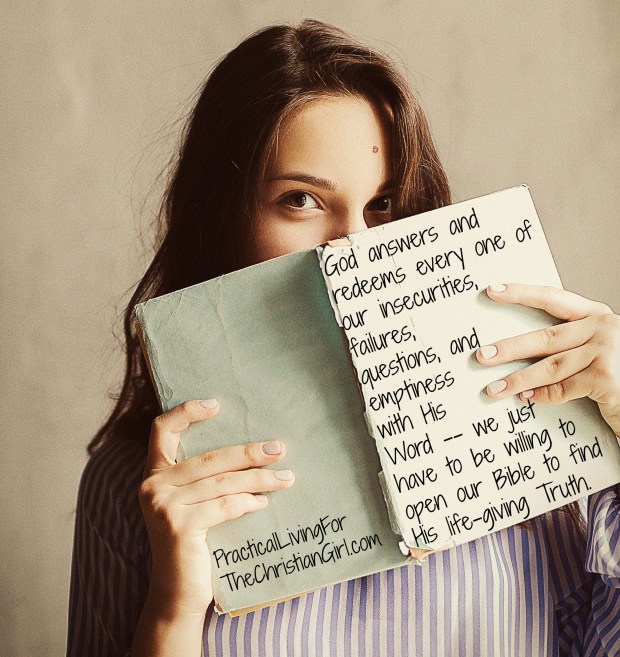 PracticalLivingFor
TheChristianGirl.com
God answers and
redeems every one of
our insecurities,
failures,
questions, and
emptiness
with His
Word -- we just
have to be willing to
open our Bible to find
His life-giving Truth.